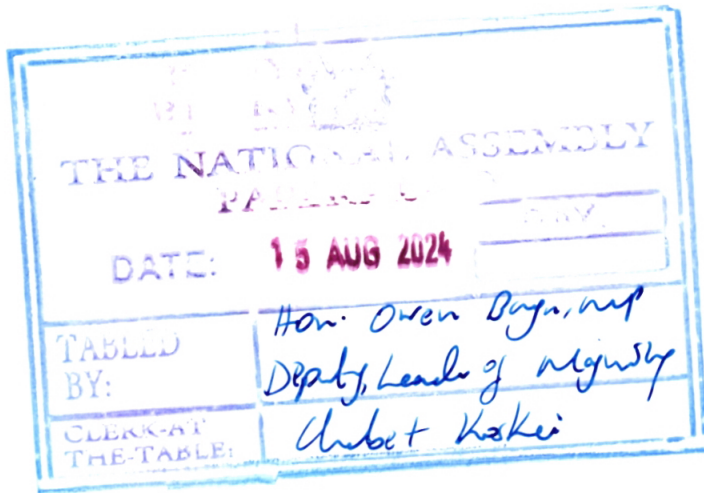 THE NATIONAL ASSEMBLY
PAPERS
DAY
DATE: 15 AUG 2024
TABLED BY:
Hon. Owen Baya, MP
Deputy, Leader of Majority
CLERK-AT THE-TABLE:
Chebet Koskei